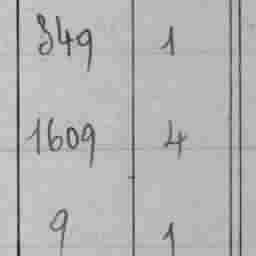 349 1
1609 4
9 1